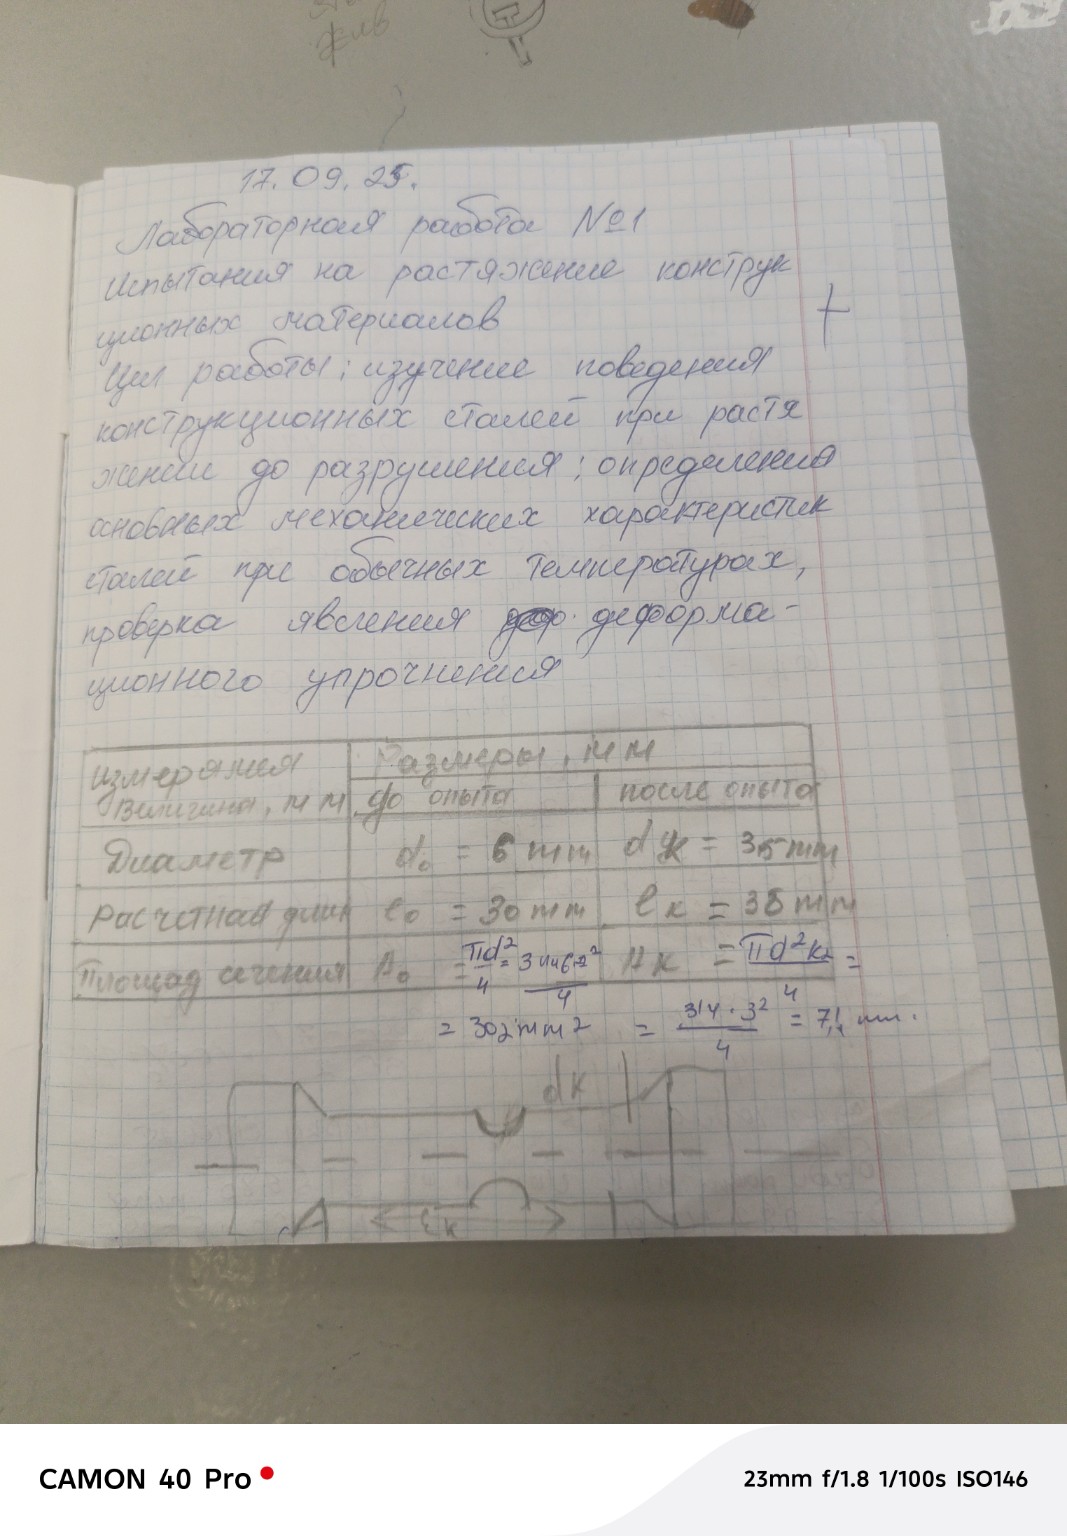 17. 09. 25.
Лабораторная работа №1
Испытания на растяжение конструк
ционных материалов
Цел работы; изучение поведения
конструкционных сталей при растя
жении до разрушения; определения
основных механических характеристик
сталей при обычных температурах,
проверка явления деформа-
ционного упрочнения
измеряемая
Величины, мм
Размеры, мм
до опыта
после опыта
Диаметр d₀ = 6 mm dк = 3,5 mm
Расчетная длин l₀ = 30 mm lк = 38 mm
Площад сечения A₀ = πd²/4 = Aк = πd²к/4 =
= 30,2 mm² = 3,14 · 3²/4 = 7,1
dк
lк
CAMON 40 Pro
23mm f/1.8 1/100s ISO146